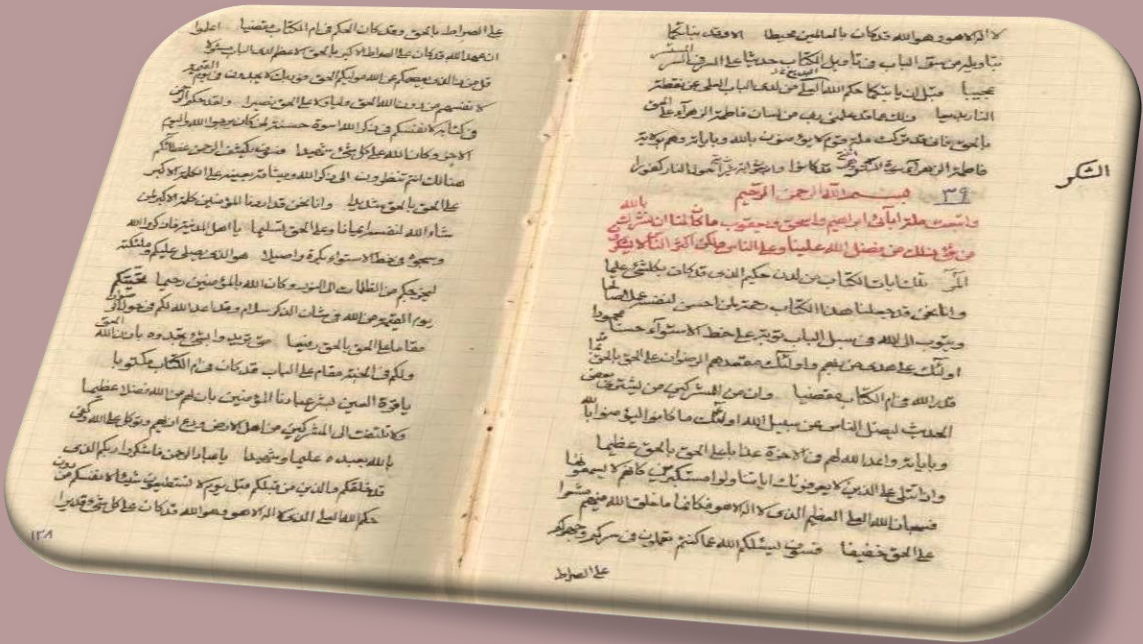 لا اله الا هو وهو الله قد كان بالعالمين محيطا الا وقد
بتاويله من سر الباب في تأويل الكتاب حديثا على السر
عجيبا قبل ان حكم الله العلى من لدى الباب
النار وذلك ما قد علمنى ربى من لسان فاطمة الزهراء على الحق
بالحق فانى قد تركت ملة قوم لا يؤمنون بالله وباياته وهم بولاية
فاطمة الزهراء قد كانوا حول النار كفورا
الشكر
٣٩ بسم الله الرحمن الرحيم
واتبعت ملة اباءى ابراهيم واسحق ويعقوب ما كان لنا ان نشرك بالله
من شئ ذلك من فضل الله علينا وعلى الناس ولكن اكثر الناس لا يشكرون
المر تلك ايات الكتاب من لدن حكيم الذى قد كان بكلشئ عليما
وانا نحن قد جعلنا هذا الكتاب رحمة لمن احسن لنفسه على
ويتوب الى الله فى سبيل الباب توبة على خط الاستواء محمودا
اولئك على هدى من ربهم واولئك مقعدهم الرضوان على الحق بالحق
قدر الله فى ام الكتاب مقضيا وان من المشركين من يشترى بعض
الحديث ليضل الناس عن سبيل الله اولئك ما كانوا ليؤمنوا بالله
وباياته واعد الله لهم فى الاخرة عذابا على الحق بالحق عظيما
واذا تتلى على الذين لا يعرفونك اياتنا ولوا مستكبرين كانهم لا يسمعونها
فسبحان الله العلى العظيم الذى لا اله الا هو فكانما ما خلق الله فيهم
على الحق خفيفا فسوف ليسئلكم الله عما كنتم تعملون فى سركم وجهركم
على الصراط
على الصراط بالحق وقد كان الحكم فى ام الكتاب مقضيا اعلموا
ان هذا الله قد كان على الصراط الاكبر بالحق الاعظم لدى الباب
قل من الذى ينجيكم من الله موليكم الحق ومن يك لا يجدون فى يوم القيمة
لانفسهم من دون الله الحق وليا ولا على الحق نصيرا ولقد حكم
فى كتابه لانفسكم فى ذكر الله اسوة حسنة لمن كان يرجوا الله واليوم
الاخر وكان الله على كل شئ شهيدا فسوف يكشف الرحمن غطائكم
هنالك انتم تنظرون الى ذكر الله
على الحق بالحق شديدا وانا نحن قد المؤمنين كلمة الاكبر
شاء الله لنفسه وعلى الحق تسليما يا اهل المدينة فاذكروا الله
وسبحوه فى خط الاستواء بكرة واصيلا هو الذى يصلى عليكم وملئكته
ليخرجكم من الظلمات الى النور وكان الله بالمؤمنين رحيما تحيتكم
يوم القيمة من الله فى شان الذكر سلام وقد اعد الله لكم فى حول
مقاما على الحق بالحق رفيعا
ولكم فى الجنة مقام على الباب قد كان فى ام الكتاب مكتوبا
يا قرة العين بشر عبادنا المؤمنين بان لهم من الله فضلا عظيما
ولا تلتفت الى المشركين من اهل الارض ودع اذيهم وتوكل على الله وكفى
بالله بعبده عليما وشهيدا يا عباد الرحمن فاشكروا ربكم الذى
قد خلقكم والذين من قبلكم قبل يوم لا تستطيعون شيئا لانفسكم من دون
حكم الله العلى الذى لا اله الا هو وهو الله قد كان على كل شئ قديرا
١٣٨